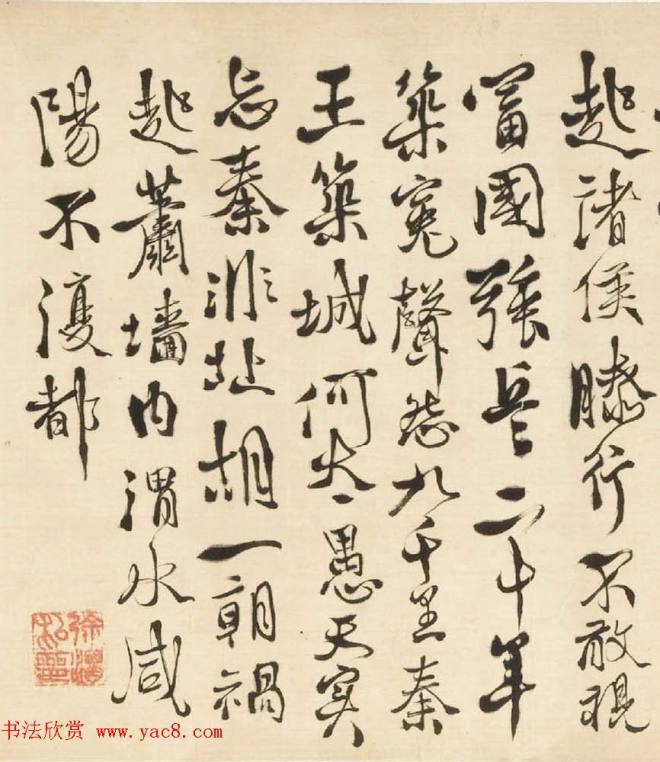 起諸侯膝行不敢視
富國強兵二十年
築冤聲九千里秦
王築城何太愚天實
忘秦非北胡一朝禍
起蕭墻内渭水咸
陽不復都
书法欣赏 www.yac8.com